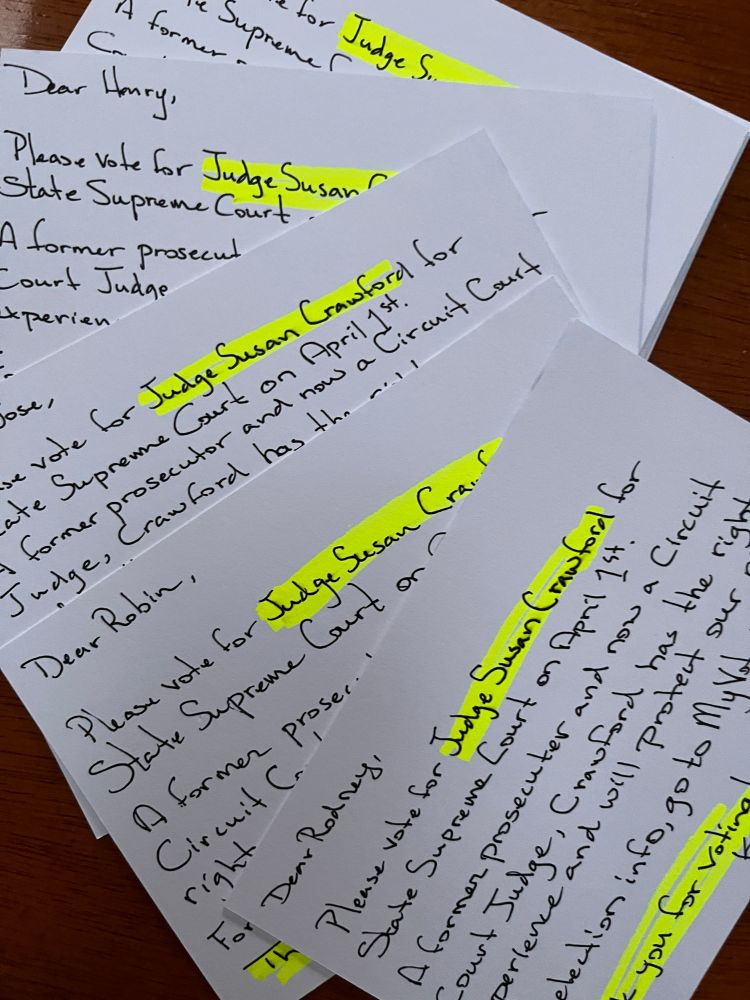 te for
te Supreme C
Judge S
A former
Dear Henry,
Please vote for Judge Susan C
State Supreme Court
A former prosecut
Court Judge
experien
Jose,
se vote for Judge Susan Crawford for
tate Supreme Court on April 1st.
A former prosecutor and now a Circuit Court
Judge, Crawford has the
Dear Robin,
Please vote for Judge Susan Craw
State Supreme Court on
A former prosec
Circuit Co
right
For
Th
Dear Rodney,
Please vote for Judge Susan Crawford for
State Supreme Court on April 1st.
A former prosecuter and now a Circuit
Court Judge, Crawford has the right
perience and will protect our
election info, go to MyVot
k you for voting!